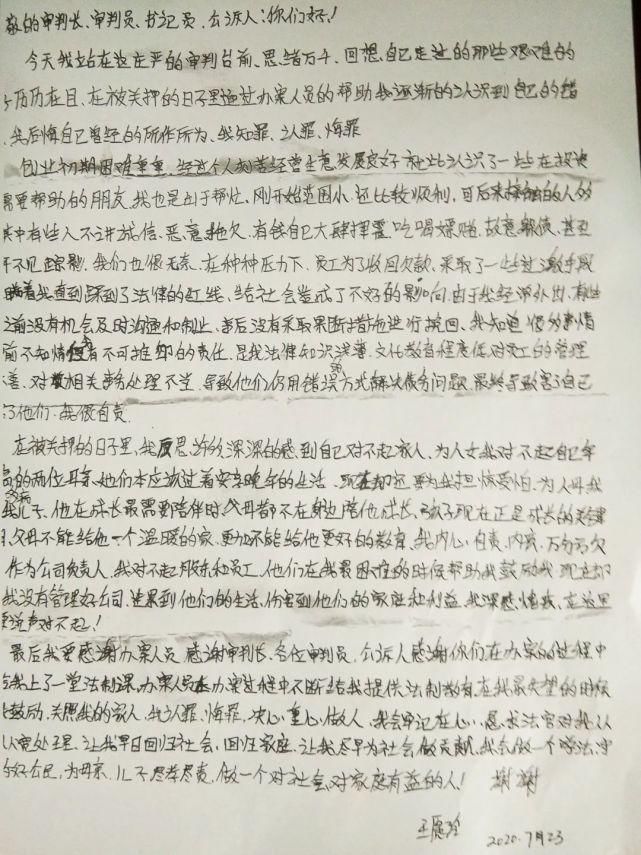 敬的审判长、审判员、书记员、公诉人:你们好!
今天我站在这庄严的审判台前、思绪万千、回想自己走过的那些艰难的
历历在目、在被关押的日子里通过办案人员的帮助我逐渐的认识到自己的错
、我后悔自己曾经的所作所为、我知罪、认罪、悔罪
创业初期困难重重、经过个人的苦经营生意发展良好、就此认识了一些在投资
需要帮助的朋友、我也是出于帮忙、刚开始范围小、还比较顺利、可后来接触的人多
其中有些人不讲诚信、恶意拖欠、有钱自己大肆挥霍、吃喝嫖赌、故意躲债、甚至
不见踪影、我们也很无奈、在种种压力下、员工为了收回欠款、采取了一些过激手段
瞒着我直到踩到了法律的红线、给社会造成了不好的影响、由于我经常外出、有些
前没有机会及时沟通和制止、事后没有采取果断措施进行挽回、我知道很多事情
前不知情但有不可推卸的责任、是我法律知识浅薄、文化教育程度低、对员工的管理
善、对相关事务处理不当、导致他们仍用错误的方式解决债务问题、最终导致害了自己
了他们、我很自责、
在被关押的日子里、我反思许多、深深的感到自己对不起家人、为人女我对不起自己年
的两位母亲、她们本应该过着安享晚年的生活、现在却还要为我担惊受怕、为人母我
我儿子、他在成长最需要陪伴时父母都不在身边陪他成长、孩子现在正是成长的关键
父母不能给他一个温暖的家、更加不能给他更好的教育、我内心自责、内疚、万分亏欠
作为公司负责人、我对不起股东和员工、他们在我最困难的时候帮助我鼓励我、现在却
我没有管理好公司、连累到他们的生活、伤害到他们的家庭和利益、我深感愧疚、在这里
说声对不起!
最后我要感谢办案人员、感谢审判长、各位审判员、公诉人感谢你们在办案的过程中
给我上了一堂法制课、办案人员在办案过程中不断给我提供法制教育、在我最失望的时候
鼓励、关照我的家人、我认罪、悔罪、决心重心做人、我会牢记在心、恳求法官对我从
从宽处理、让我早日回归社会、回归家庭、让我尽早为社会做贡献、我会做一个学法、守
的好公民、为母亲、儿子尽孝尽责、做一个对社会对家庭有益的人! 谢谢
2020.7月23